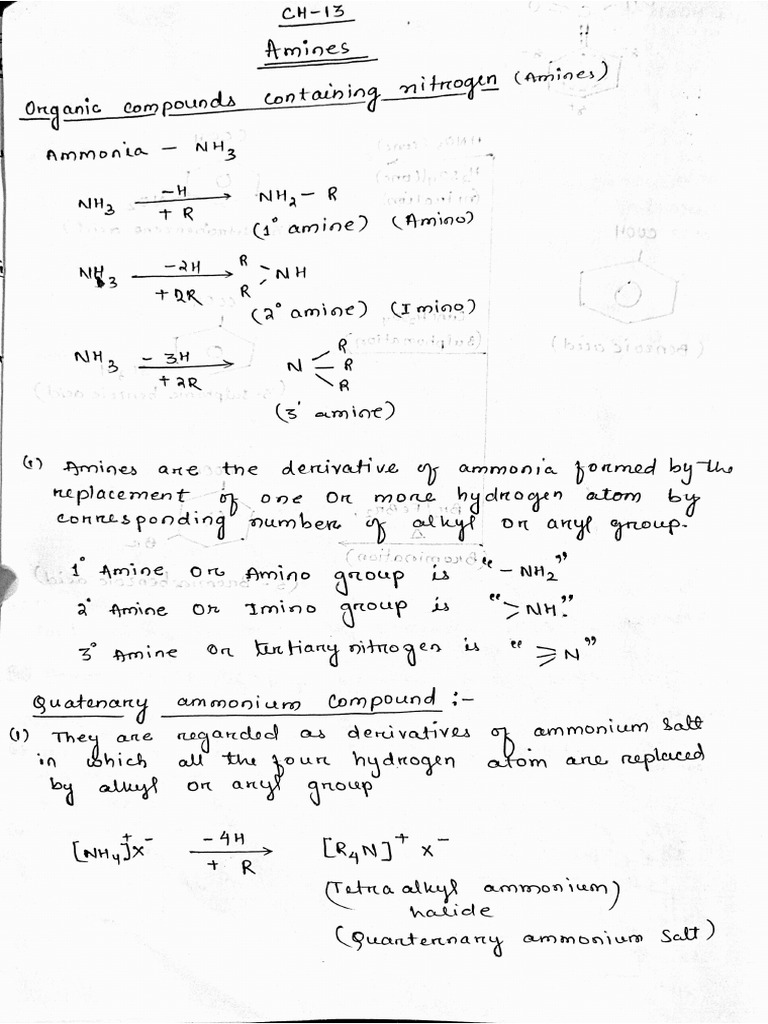 CH-13
Amines
Organic compounds containing nitrogen (Amines)
Ammonia - NH3
NH3 -H + R → NH2 - R
(1° amine) (Amino)
NH3 -2H +2R → R R > NH
(2° amine) (Imino)
NH3 - 3H +2R → N R R R
(3° amine)
(1) Amines are the derivative of ammonia formed by the
replacement of one or more hydrogen atom by
corresponding number of alkyl or aryl group.
1° Amine or Amino group is "- NH2"
2° Amine or Imino group is "> NH."
3° Amine or tertiary nitrogen is "⩾ N"
Quatenary ammonium compound :-
(1) They are regarded as derivatives of ammonium salt
in which all the four hydrogen atom are replaced
by alkyl or aryl group
[NH4]+ X- - 4H + R → [R4N]+ X-
(Tetra alkyl ammonium)
halide
(Quarternary ammonium salt)